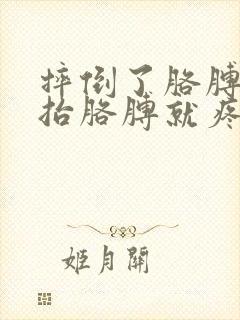 摔倒了胳膊
抬胳膊就疼
姬月關